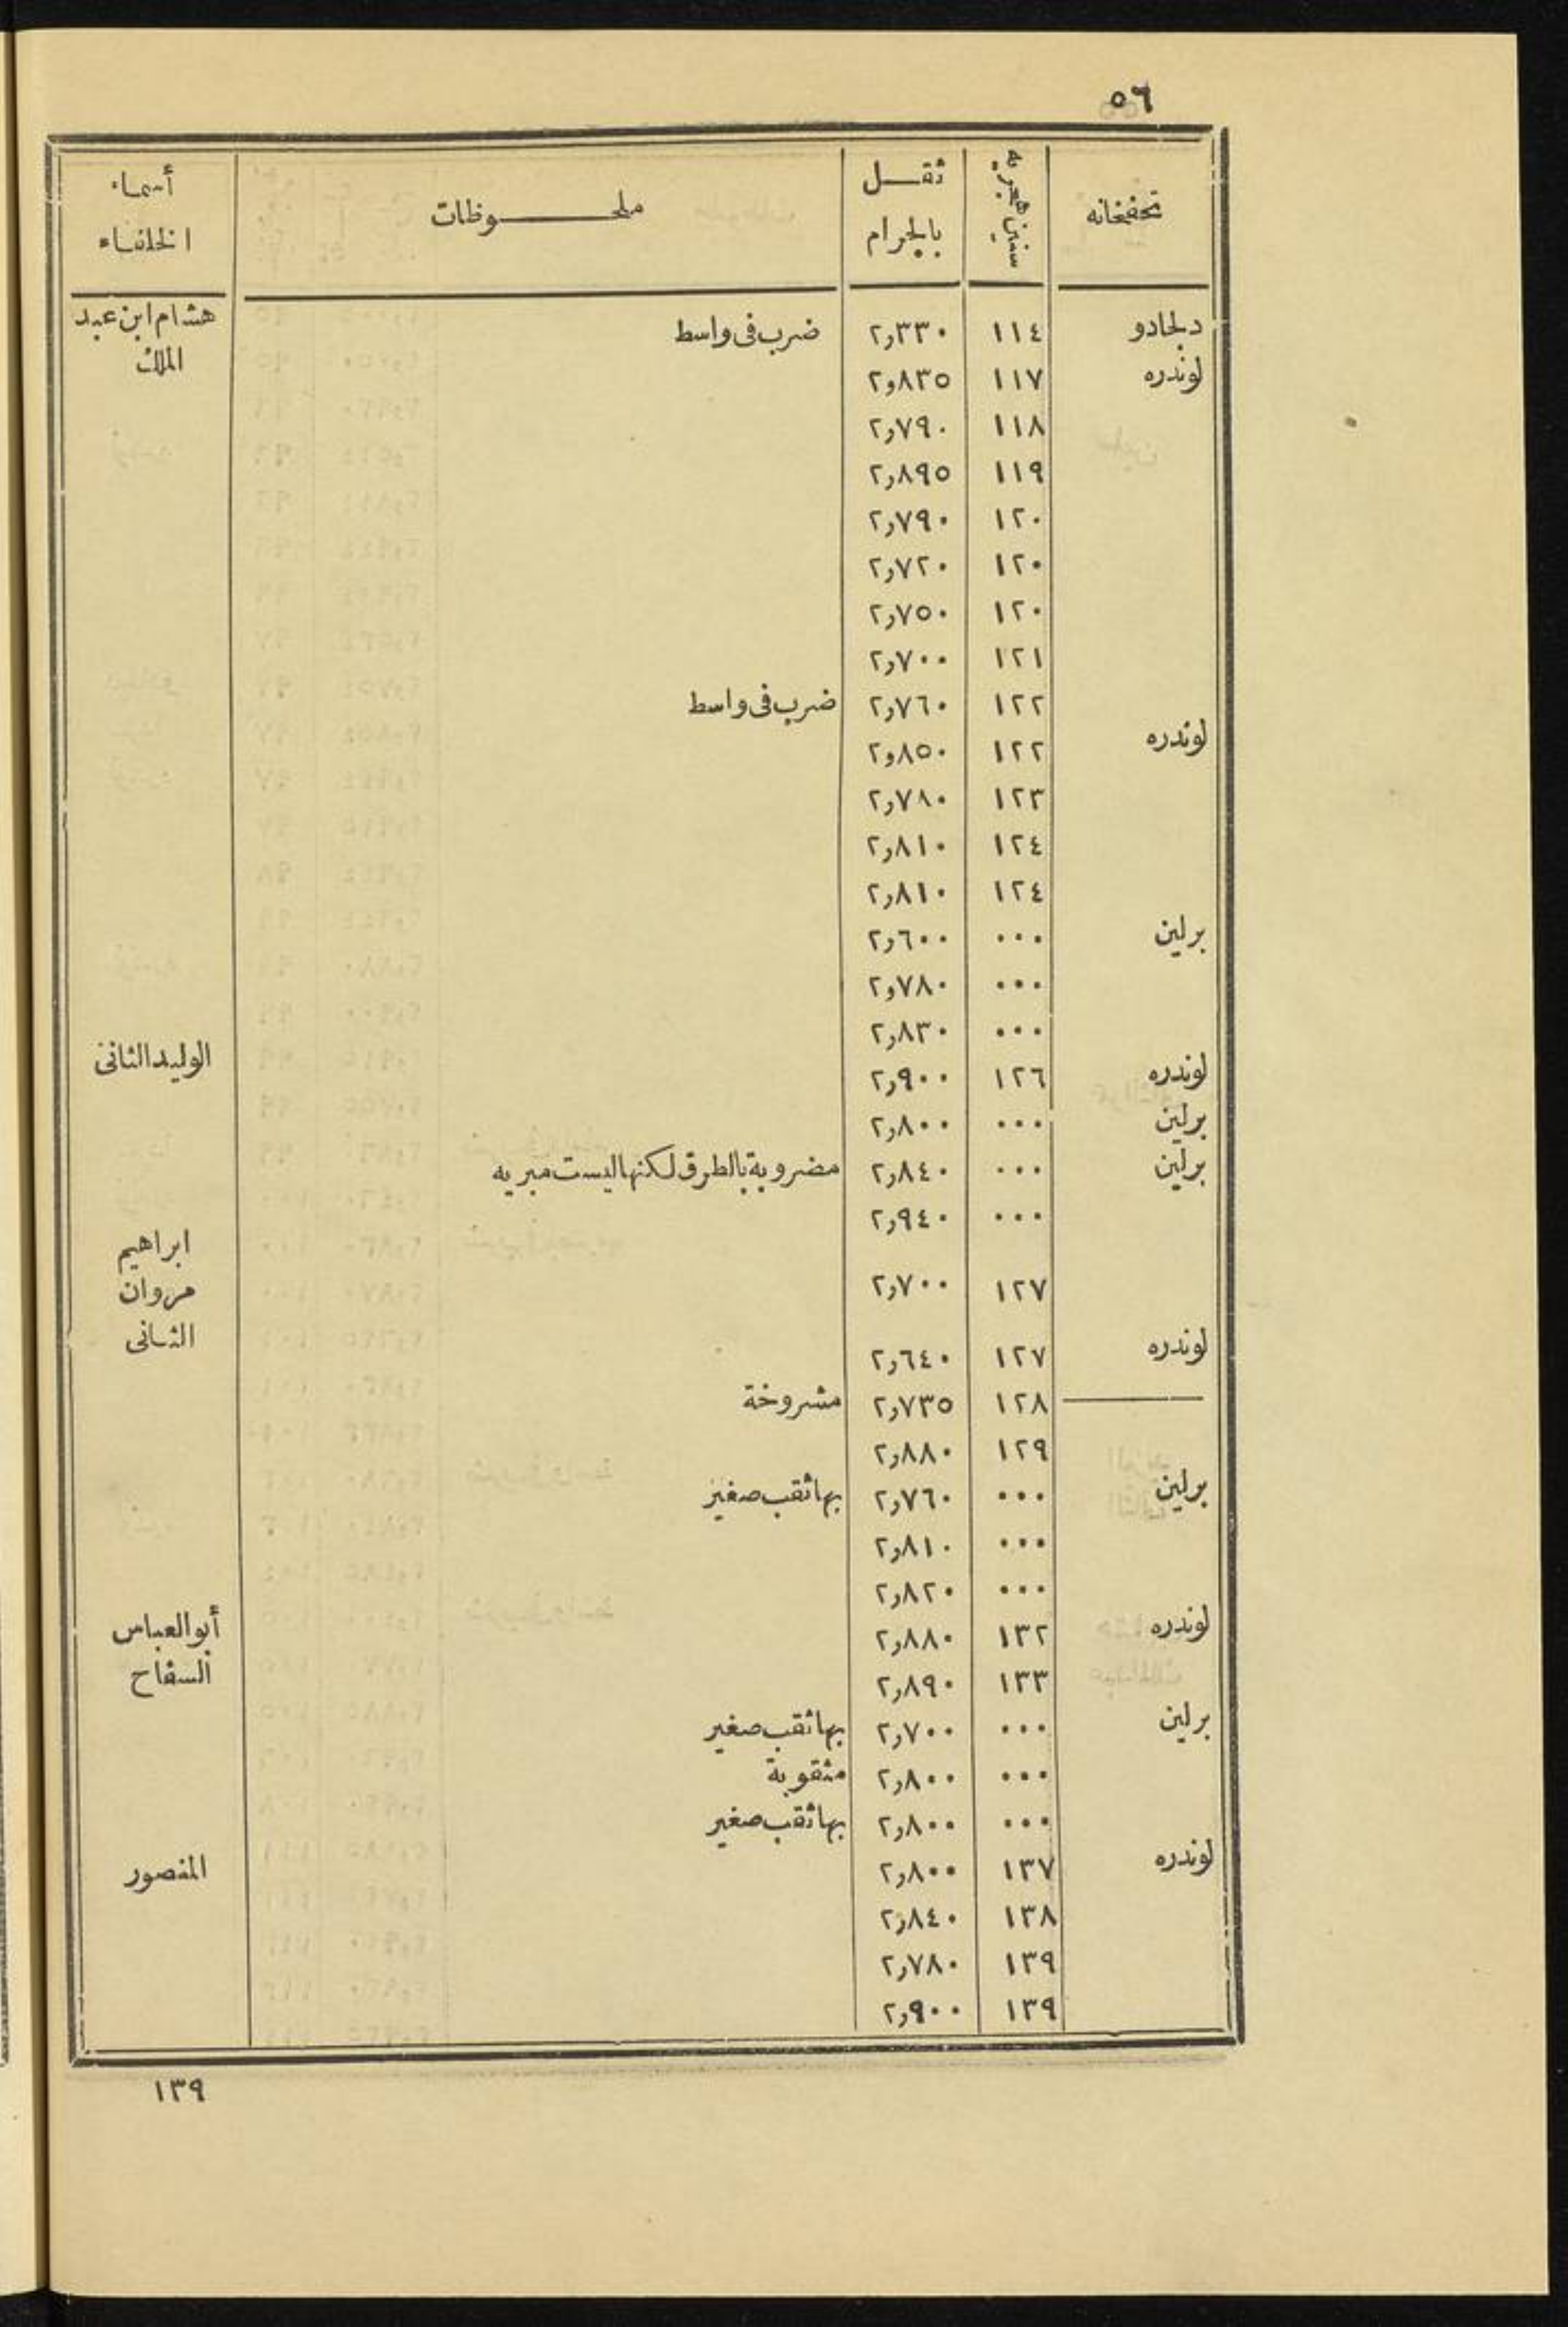 ٥٦
تحفخانه	سنين هجريه	ثقل بالجرام	ملحوظات	أسماء الخلفاء
دلجادو	١١٤	٢,٣٣٠	ضرب فى واسط	هشام ابن عبد
لوندره	١١٧	٢,٨٣٥		الملك
	١١٨	٢,٧٩٠
	١١٩	٢,٨٩٥
	١٢٠	٢,٧٩٠
	١٢٠	٢,٧٢٠
	١٢٠	٢,٧٥٠
	١٢١	٢,٧٠٠
	١٢٢	٢,٧٦٠	ضرب فى واسط
لوندره	١٢٢	٢,٨٥٠
	١٢٣	٢,٧٨٠
	١٢٤	٢,٨١٠
	١٢٤	٢,٨١٠
برلين	٠٠٠	٢,٦٠٠
	٠٠٠	٢,٧٨٠
	٠٠٠	٢,٨٣٠
لوندره	١٢٦	٢,٩٠٠		الوليد الثانى
برلين	٠٠٠	٢,٨٠٠
برلين	٠٠٠	٢,٨٤٠	مضروبة بالطرق لكنها ليست مبريه
	٠٠٠	٢,٩٤٠		ابراهيم
	١٢٧	٢,٧٠٠		مروان
لوندره	١٢٧	٢,٦٤٠		الثانى
—	١٢٨	٢,٧٣٥	مشروخة
	١٢٩	٢,٨٨٠
برلين	٠٠٠	٢,٧٦٠	بها ثقب صغير
	٠٠٠	٢,٨١٠
	٠٠٠	٢,٨٢٠
لوندره	١٣٢	٢,٨٨٠		أبو العباس
	١٣٣	٢,٨٩٠		السفاح
برلين	٠٠٠	٢,٧٠٠	بها ثقب صغير
	٠٠٠	٢,٨٠٠	مثقوبة
	٠٠٠	٢,٨٠٠	بها ثقب صغير
لوندره	١٣٧	٢,٨٠٠		المنصور
	١٣٨	٢,٨٤٠
	١٣٩	٢,٧٨٠
	١٣٩	٢,٩٠٠
١٣٩